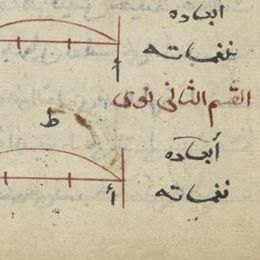 أبعاده
نغماته
أ
القسم الثاني نوى
ط
أبعاده
نغماته
أ